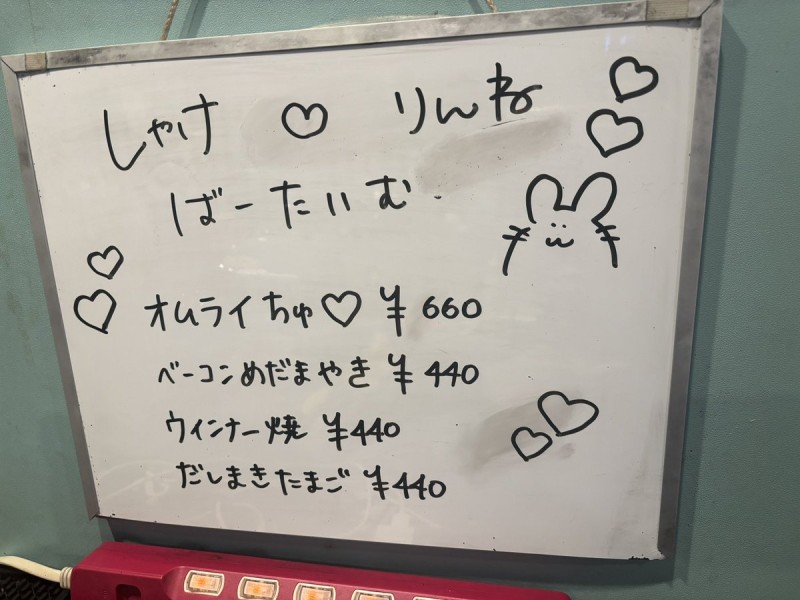 しゃけ ♡ りんね
ばーたいむ
オムライちゅ♡ ¥660
ベーコンめだまやき ¥440
ウインナー焼 ¥440
だしまきたまご ¥440